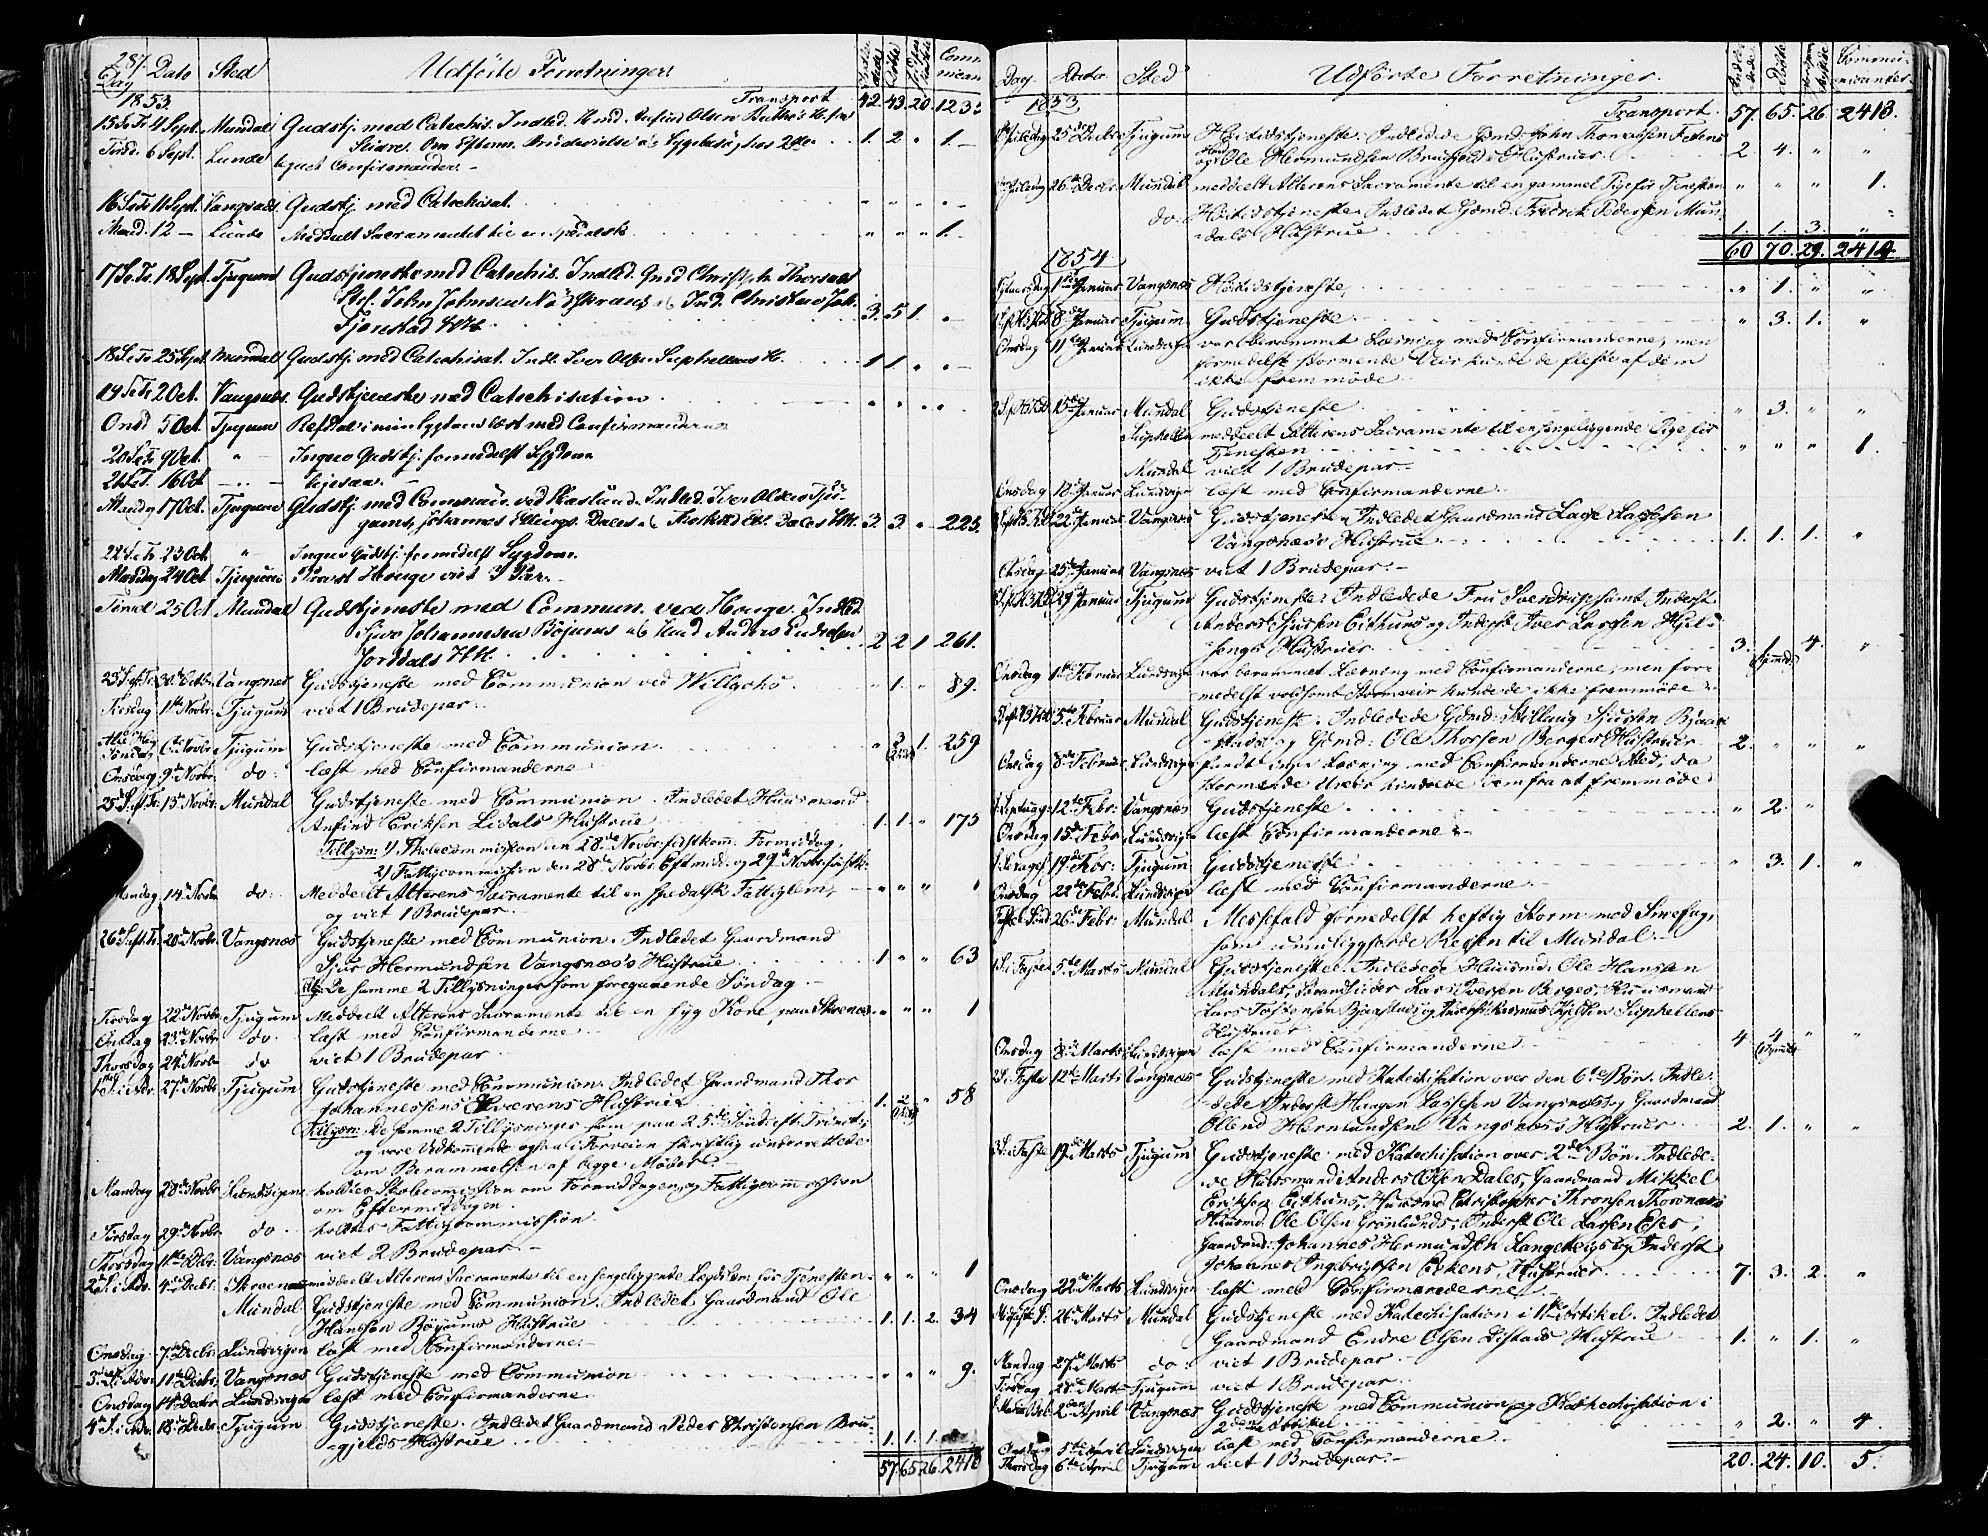 287.
Dag Dato Sted Udførte Forretninger. Indledede Døbte Communicanter
1853. Transport 42. 43. 20. 123
15 S e Tr 4 Sept. Mundal Gudstj. med Catechis. Indled. Hmd. Olsen
1. 2 „ 1.
Tirsd. 6 Sept. Lunde begynt Confirmander.
16 S e Tr 11 Sept. Vangsnæs Gudstj. med Catechisat.
Mand. 12 — Lunde Meddeelt Sacramentet til en Spedalsk „ „ „ 1.
17 S e Tr 18 Sept. Tjugum Gudstjeneste med Catechis. Indled.
3. 5 1. „
18 S e Tr 25 Sept. Mundal Gudstj. med Catechisat. Indl. Iver Olsen Suphellens H. 1 1 „ „
19 S e Tr 2 Oct. Vangsnæs Gudstjeneste med Catechisation
Onsd 5 Oct. Tjugum læst med Confirmanderne
20 S e Tr 9 Oct. „ Ingen Gudstj. formedelst Sygdom
21 S e T. 16 Oct ligesaa.
Mandag 17 Oct. Tjugum Gudstj. med Commun. ved Indled. Iver Olsen Tju-
gums, Johannes Ellings. Dales 3. 3. „ 225.
22 S e Tr 23 Oct „ Ingen Gudstj. formedelst Sygdom
Mandag 24 Oct Tjugum Provst Houge viet 3 Par.
Tirsd 25 Oct Mundal Gudstjeneste med Commun. ved Houge. Indled
Sjur Johannesen Böjums
Jorddals 2 2 1 261.
23 S. e. Tr. 30 Octbr. Vangsnæs Gudstjeneste med Communion ved Willochs „ 1. „ 89.
Tirsdag 1ste Novbr. Tjugum viet 1 Brudepar.
Søndag 6te Novbr. Tjugum Gudstjeneste med Communion 1. 259
Onsdag 9de Novbr. do: læst med Confirmanderne
25 S. e. Tr. 13de Novbr. Mundal Gudstjeneste med Communion. Indledet Huusmand
Anfind Eriksen Lidals Hustrue 1. 1. „ 173
Tillysn: 1) Skolecommission den 28de Novbr. førstkom. Formiddag.
2) Fattigcommission den 28de Novbr. Eftmid. og 29de Novbr. førstk:
Mandag 14de Novbr. do: Meddeelt Alterens Sacramente til en spedalsk Fattiglem,
og viet 1 Brudepar.
26 S. e. Tr. 20de Novbr. Vangsnæs Gudstjeneste med Communion. Indledet Gaardmand
Sjur Hermundsen Vangsnæs's Hustrue 1. „ „ 63
De samme 2 Tillysninger som foregaaende Søndag.
Tirsdag 22de Novbr. Tjugum Meddeelt Alterens Sacramente til en syg Kone „ „ „ 1
Onsdag 23de Novbr. do. læst med Confirmanderne
Thorsdag 24de Novbr do viet 1 Brudepar
27de Novbr Tjugum Gudstjeneste med Communion. Indledet Gaardmand Thor
Johannessens Hustrue 1. 2 „ 58
Tillysn: De samme 2 Tillysninger som paa 25de Sønd: eft. Trinit:
og vare Vedkommende ogsaa i Forveien skriftlig underrettede
om Berammelsen af begge Møder.
Mandag 28de Novbr Lundsvigen holdtes Skolecommission om Formiddagen og Fattigcommission
om Eftermiddagen.
Tirsdag 29de Novbr. do. holdtes Fattigcommission
Thorsdag 1ste Decbr. Vangsnæs viet 2 Brudepar.
2 S. i Adv. 4de Decbr. meddeelt Alterens Sacramente til en sengeliggende Lægdslem før Tjenesten. „ „ „ 1
Mundal Gudstjeneste med Communion. Indledet Gaardmand Ole
Hanssen Böyums Hustrue 1. 1. 2. 34
Onsdag 7de Decbr. Lundsvigen læst med Confirmanderne
3 S. i Adv. 11te Decbr. Vangsnæs Gudstjeneste med Communion „ „ „ 9.
Onsdag 14de Decbr Lundsvigen læst med Confirmanderne
4 S. i Adv. 18de Decbr Tjugum Gudstjeneste. Indledet Gaardmand Peder Christensen Bru-
gjelds Hustrue 1. 1. 1.
57. 65 26. 2418
Dag. Dato Sted Udførte Forretninger. Indledede Døbte Communicanter
1853. Transport. 57. 65. 26. 2418.
25de Decbr Tjugum Høitidstjeneste. Indledede Gdmd. John Thomassen Fedens
og Ole Hermundsen Brugjelds Hustruer. 2. 4. „ „
26de Decbr Mundal meddeelt Alterens Sacramente til en gammel Pige før Tjenesten „ „ „ 1.
do. Høitidstjeneste. Indledet Gdmd. Fredrik Pedersen Mun-
dals Hustrue 1. 1. 3. „
60 70. 29. 2419
1854
Nytaarsdag 1ste Januar Vangsnæs Høitidstjeneste. „ 1. „ „
8de Januar Tjugum Gudstjeneste. „ 3. 1. „
Onsdag 11te Januar Lundsvigen var berammet Læsning med Confirmanderne, men
formedelst stormende Veir kunde de fleste af dem
ikke fremmøde.
15de Januar Mundal Gudstjeneste „ 3. „ „
Suphellen meddeelt Alterens Sacramente til en sengeliggende Pige før
Tjenesten „ „ „ 1.
Mundal viet 1 Brudepar.
Onsdag 18de Januar Lundsvigen læst med Confirmanderne
22de Januar Vangsnæs Gudstjeneste. Indledet Gaardmand Lasse Lassesen
Vangsnæs's Hustrue 1. 1. 1. „
25de Januar Vangsnæs viet 1 Brudepar.
29de Januar Tjugum Gudstjeneste. Indledede Fru Sverdrup samt Inderst
Anders Sjursen Eithuns og Inderst Iver Larssen Hjels-
engs Hustruer 3. 1. 4. „
Onsdag 1ste Februar Lundsvigen var berammet Læsning med Confirmanderne, men for-
medelst voldsomt Stormveir kunde de ikke fremmøde.
5te Februar Mundal Gudstjeneste. Indledede Gdmd: Sjursen
og Gdmd: Ole Thorsen Berges Hustruer 2. „ „ „
Onsdag 8de Februar Lundsvigen fandt ingen Læsning med Confirmanderne Sted, da
stormende Veir hindrede dem fra at fremmøde
12te Febr: Vangsnæs Gudstjeneste „ 2. „
Onsdag 15de Febr. Lundsvigen læst Confirmanderne
19de Febr: Tjugum Gudstjeneste „ 3. 1. „
Onsdag 22de Febr. Lundsvigen læst med Confirmanderne
26de Febr: Mundal Messefald formedelst heftig Storm med Sneefog,
som umuliggjorde Reisen til Mundal.
5te Marts Mundal Gudstjeneste. Indledede Huusmd. Ole Hanssen
Mundals, Lars Iversen Berges, Huusmand
Lars Torstensen og Inderst Rasmus Suphellens
Hustruer 4 4 „ „
Onsdag 8de Marts Lundsvigen læst med Confirmanderne
2 S. i Faste 12te Marts Vangsnæs Gudstjeneste med Katechisation over den 6te Bøn. Indle-
dede Inderst Haagen Lassesen Vangsnæs's og Gaardmand
Erlend Hermundsen Vangsnæs's Hustruer 2. 1. „ „
3 S. i Faste 19de Marts Tjugum Gudstjeneste med Katechisation over 2den Bøn. Indlede-
de Huusmand Anders Olsen Dales, Gaardmand Mikkel
Eriksen Eithuns, Huusmd Christopher Thronsen Thorsnæs's
Huusmd. Ole Olsen Grönlunds, Inderst Ole Lassen Eses,
Gaardmd: Johannes Hermundsen og Inderst
Johannes Ingebrigtsen Eskens Hustruer 7. 3. 2. „
Onsdag 22de Marts Lundsvigen læst med Confirmanderne
26de Marts Mundal Gudstjeneste med Katechisation i 1ste Artikel. Indledet
Gaardmand Endre Olsen Distads Hustrue 1. „ 1. „
Mandag 27de Marts do: viet 1 Brudepar
Tirsdag 28de Marts Tjugum viet 1 Brudepar
2den April Vangsnæs Gudstjeneste med Communion og Kathechisation i
2den Artikel „ 2. „ 4.
Onsdag 5te April Lundsvigen læst med Confirmanderne
Thorsdag 6te April Tjugum viet 1 Brudepar. 20. 24. 10. 5.